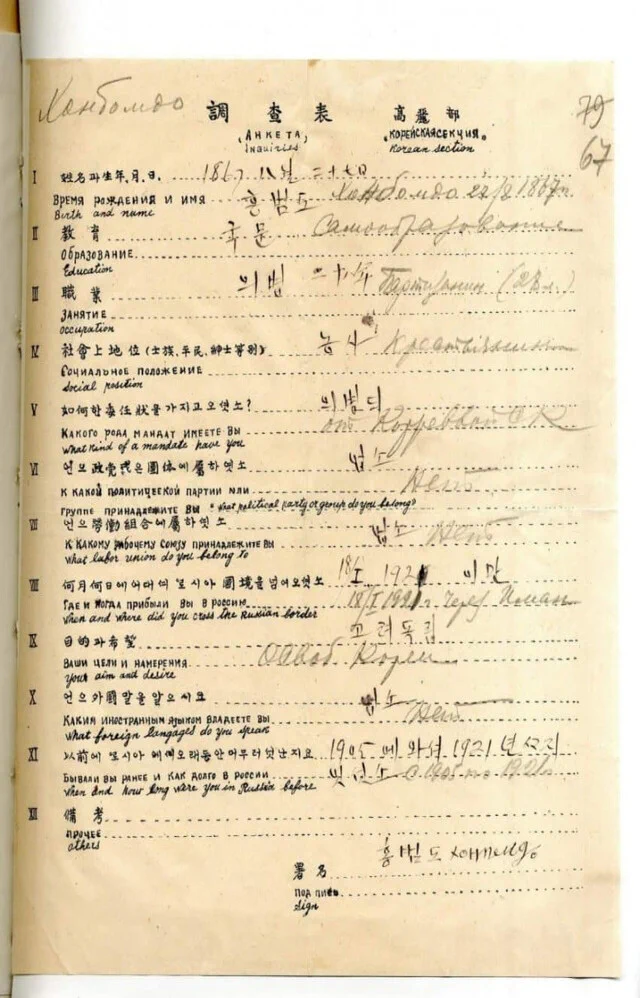 Хонбомдо
79
67
調 查 表 高麗部
(АНКЕТА) "КОРЕЙСКАЯ СЕКЦИЯ"
Inquiries Korean section
I 姓名과生年.月.日. 1867 八月 二十七日
ВРЕМЯ РОЖДЕНИЯ И ИМЯ 홍범도 Хонбомдо 1867
Birth and name
II 教育 국문 Самообразование
ОБРАЗОВАНИЕ
Education
III 職業 의병 二十八年 Партизан
ЗАНЯТИЕ
occupation
IV 社會上地位(士族、平民、紳士等別) 농사
СОЦИАЛЬНОЕ ПОЛОЖЕНИЕ
social position
V 如何한委任狀을가지고오엿소?
КАКОГО РОДА МАНДАТ ИМЕЕТЕ ВЫ от
what kind of a mandate have you
VI 언으政党或은團体에屬하엿소 업소
К КАКОЙ ПОЛИТИЧЕСКОЙ ПАРТИИ ИЛИ Нет
ГРУППЕ ПРИНАДЛЕЖИТЕ ВЫ "what political party or group do you belong?
VII 언으勞働組合에屬하엿소 업소
К КАКОМУ РАБОЧЕМУ СОЮЗУ ПРИНАДЛЕЖИТЕ ВЫ Нет
what labor union do you belong to
VIII 何月何日에어대여로시아國境을넘어오엿소 1921 이만
ГДЕ И КОГДА ПРИБЫЛИ ВЫ В РОССИЮ 18/I 1921 г. через Иман
when and where did you cross the Russian border
IX 目的과希望 고려독립
ВАШИ ЦЕЛИ И НАМЕРЕНИЯ Освоб. Кореи
your aim and desire
X 언으外國말을알으시요 업소
КАКИМ ИНОСТРАННЫМ ЯЗЫКОМ ВЛАДЕЕТЕ ВЫ Нет
what foreign langages do you speak
XI 以前에로시아에예오래동안머무러잇난지요 1921년
БЫВАЛИ ВЫ РАНЕЕ И КАК ДОЛГО В РОССИИ
when and how long were you in Russia before
XII 備考
ПРОЧЕЕ
others
홍범도
署名
ПОДПИСЬ
sign